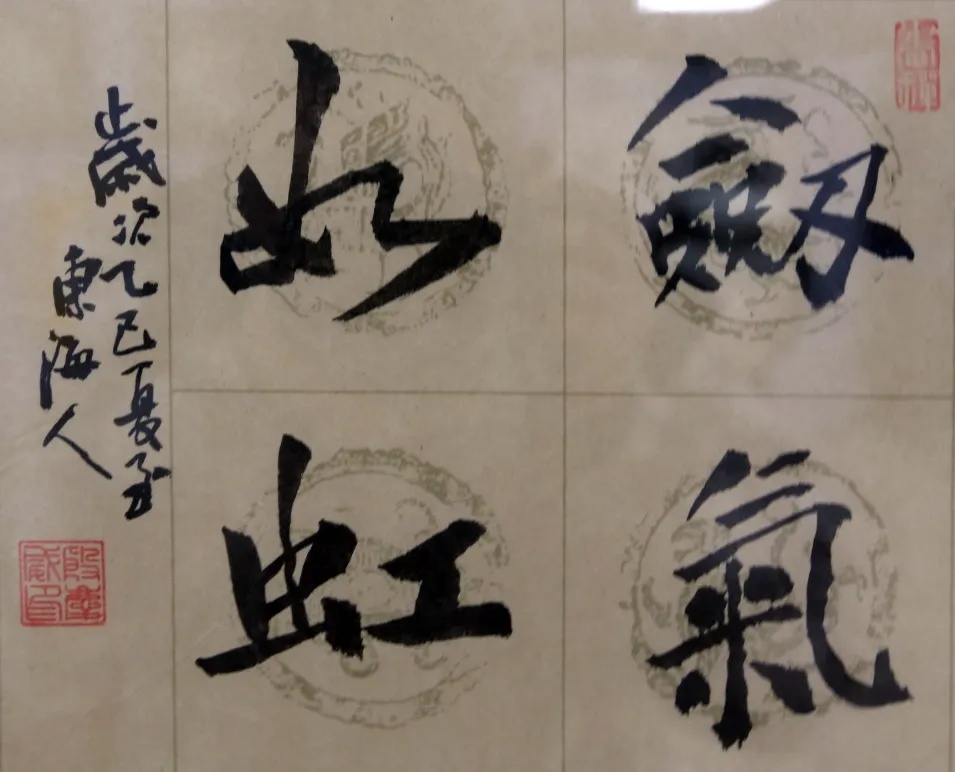 劔氣
如虹
歲次乙巳夏至
東海人